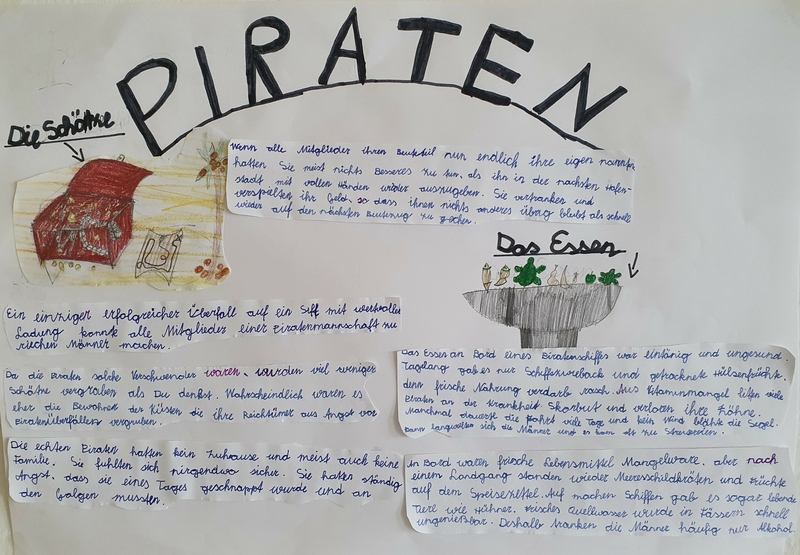 PIRATEN
Die Schätze
Wenn alle Mitglieder ihren Beuteteil nun endlich ihre eigen nannten
hatten Sie meist nichts Besseres zu tun, als ihn in der nächsten Hafen-
stadt mit vollen Händen wieder auszugeben. Sie vertranken und
verspielten ihr Geld, so dass ihnen nichts anderes übrig blubt als schnell
wieder auf den nächsten Beutezug zu gehen.
Ein einziger erfolgreicher Überfall auf ein Siff mit wertvoller
Ladung konnte alle Mitglieder einer Piratenmannschaft zu
riechen Männer machen.
Da die Piraten solche Verschwender waren, wurden viel weniger
Schätze vergraben als Du denkst. Wahrscheinlich waren es
eher die Bewohner der Küsten die ihre Reichtümer aus Angst vor
Piratenüberfällen vergruben.
Die echten Piraten hatten kein Zuhause und meist auch keine
Familie. Sie fühlten sich nirgendwo sicher. Sie hatten ständig
Angst, dass sie eines Tages geschnappt wurde und an
den Galgen mussten.
Das Essen
Das Essen an Bord eines Piratenschiffes war eintönig und ungesund.
Tagelang gab es nur Schiffszwieback und getrocknete Hülsenfrüchte,
denn frische Nahrung verdarb rasch. Aus Vitaminmangel litten viele
Piraten an der Krankheit Skorbut und verloren ihre Zähne.
Manchmal dauerte die Fahrt viele Tage und kein Wind blähte die Segel.
Dann langweilten sich die Männer und es kam oft zu Streitereien.
An Bord waren frische Lebensmittel Mangelware, aber nach
einem Landgang standen wieder Meeresschildkröten und Früchte
auf dem Speisezettel. Auf machen Schiffen gab es sogar lebende
Tiere wie Hühner. Frisches Quellwasser wurde in Fässern schnell
ungenießbar. Deshalb tranken die Männer häufig nur Alkohol.